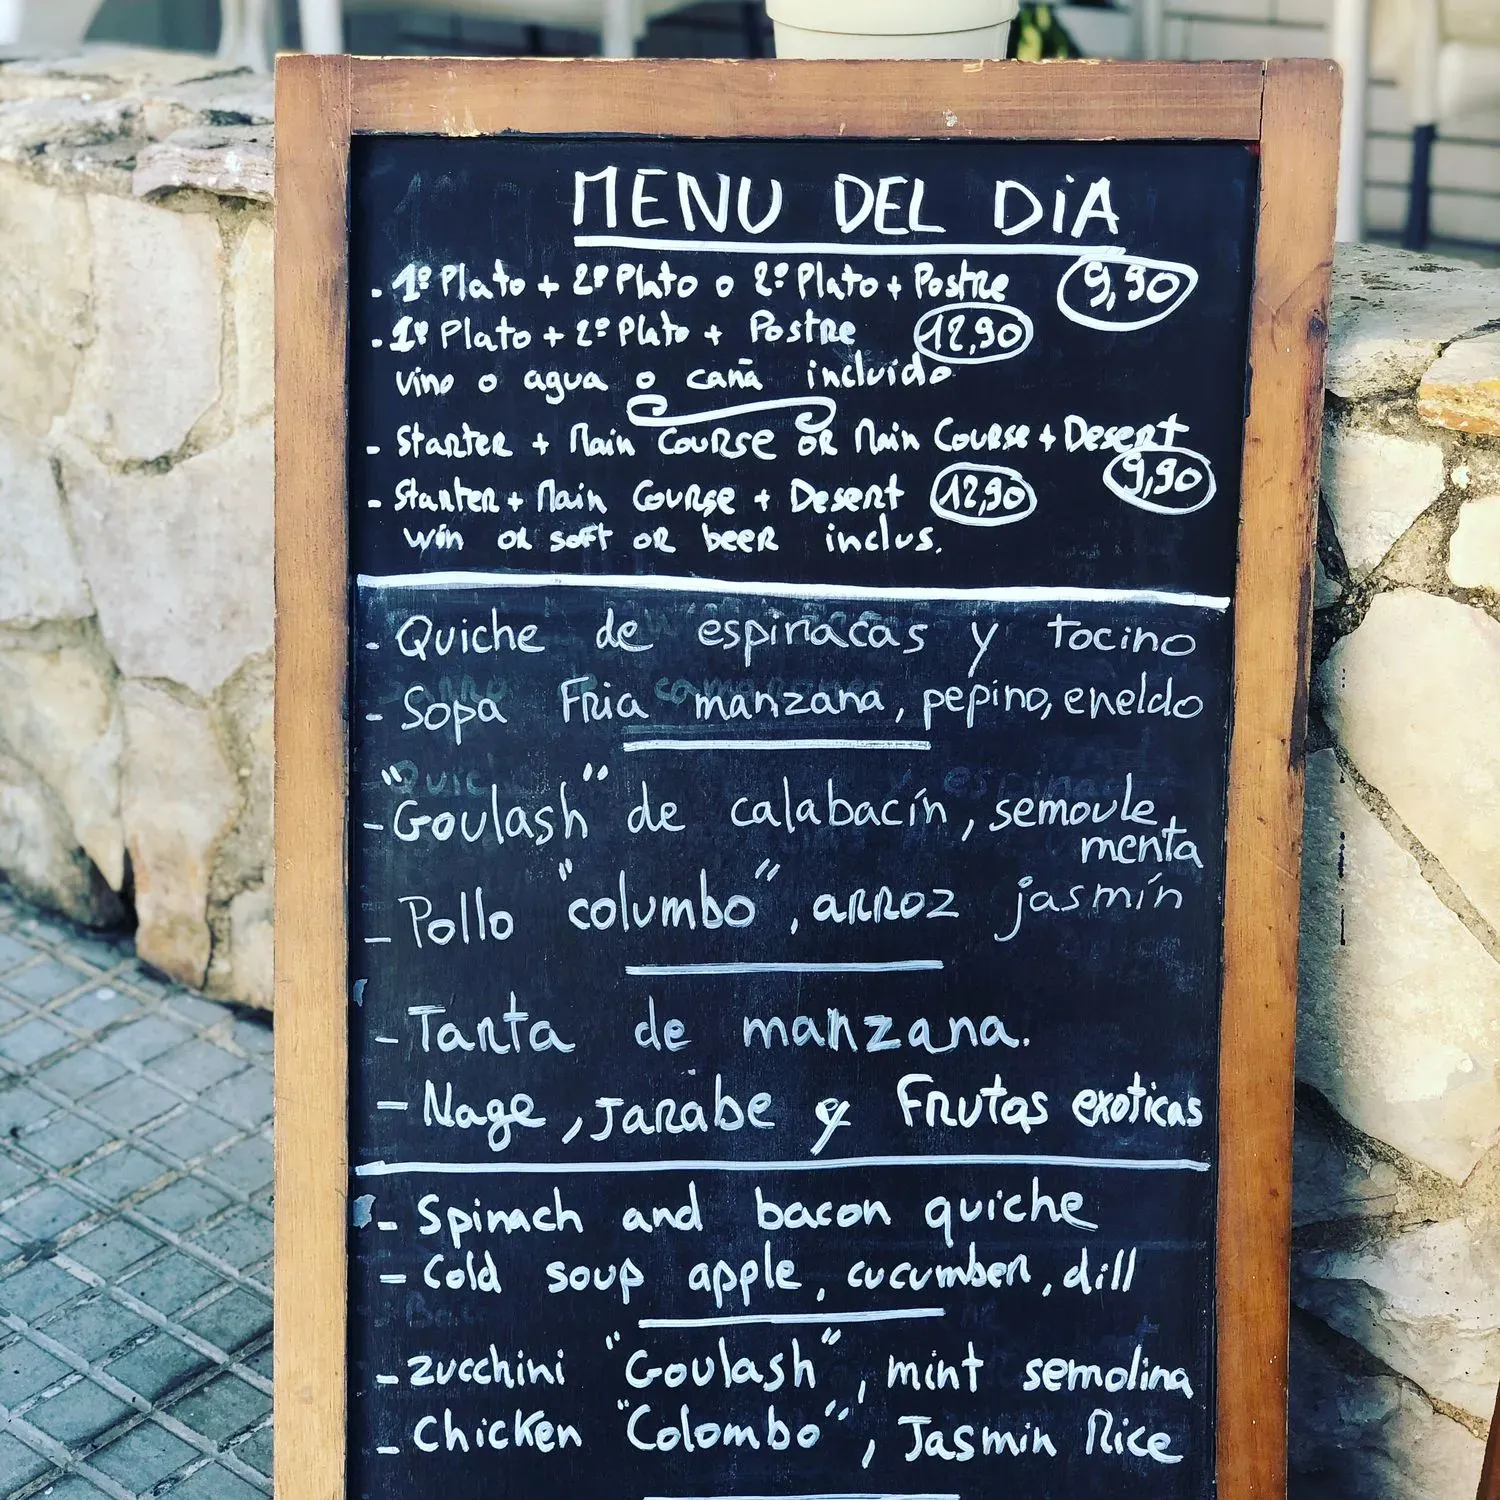 MENU DEL DiA
. 1º Plato + 2º Plato o 2º Plato + Postre 9,90
. 1º Plato + 2º Plato + Postre 12,90
vino o agua o caña incluido
- Starter + Main Course or Main Course + Desert
9,90
- Starter + Main Course + Desert 12,90
win or soft or beer inclus.
- Quiche de espinacas y tocino
- Sopa Fria manzana, pepino, eneldo
- "Goulash" de calabacín, semoule
menta
- Pollo "columbo", arroz jasmín
- Tarta de manzana.
- Nage, Jarabe y Frutas exoticas
- Spinach and bacon quiche
- Cold soup apple, cucumber, dill
- zucchini "Goulash", mint semolina
- Chicken "Colombo", Jasmin Rice